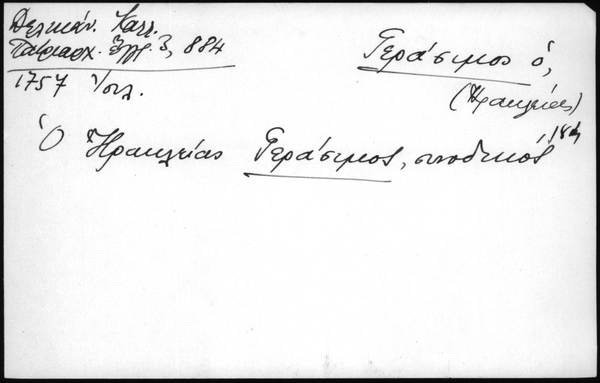 Δελικάν. Καλλ.
Πατριαρχ. Ἔγγρ. 3, 884
1757 Ἰουλ.
Γεράσιμος ὁ,
(Ἡρακλείας)
Ὁ Ἡρακλείας Γεράσιμος, συνοδικός